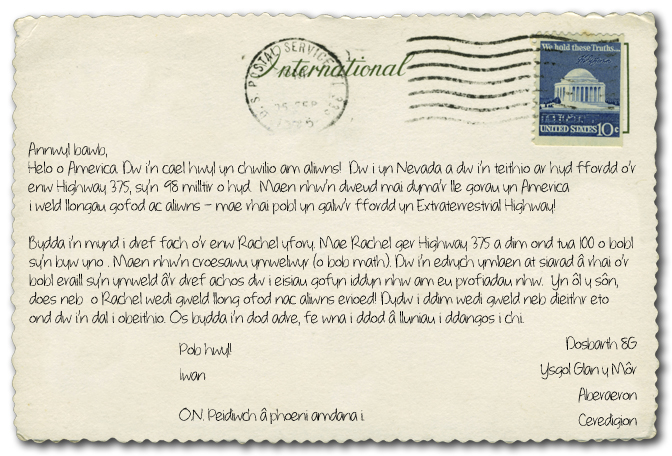 International
U.S. POSTAL SERVICE
25 SEP
We hold these Truths...
UNITED STATES 10c
Annwyl bawb,
Helo o America. Dw i'n cael hwyl yn chwilio am aliwns! Dw i yn Nevada a dw i'n teithio ar hyd ffordd o'r
enw Highway 375, sy'n 98 milltir o hyd. Maen nhw'n dweud mai dyma'r lle gorau yn America
i weld llongau gofod ac aliwns – mae rhai pobl yn galw'r ffordd yn Extraterrestrial Highway!
Bydda i'n mynd i dref fach o'r enw Rachel yfory. Mae Rachel ger Highway 375 a dim ond tua 100 o bobl
sy'n byw yno . Maen nhw'n croesawu ymwelwyr (o bob math). Dw i'n edrych ymlaen at siarad â rhai o'r
bobl eraill sy'n ymweld â'r dref achos dw i eisiau gofyn iddyn nhw am eu profiadau nhw. Yn ôl y sôn,
does neb o Rachel wedi gweld llong ofod nac aliwns erioed! Dydw i ddim wedi gweld neb dieithr eto
ond dw i'n dal i obeithio. Os bydda i'n dod adre, fe wna i ddod â lluniau i ddangos i chi.
Pob hwyl!
Iwan
O.N. Peidiwch â phoeni amdana i.
Dosbarth 8G
Ysgol Glan y Môr
Aberaeron
Ceredigion